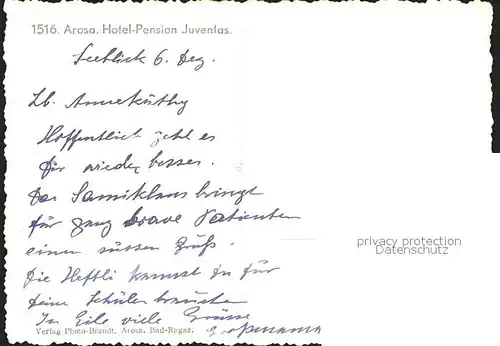 1516. Arosa. Hotel-Pension Juventas.
Seeblick 6. Dez.
Lb. Annekäthy
Hoffentlich geht es
Dir wieder besser.
Der Samiklaus bringt
für ganz brave Patienten
einen süssen Gruß.
Die Heftli kannst Du für
Deine Schüler brauchen
In Eile viele Grüsse
privacy protection
Datenschutz
Verlag Photo-Brandt, Arosa, Bad-Ragaz.